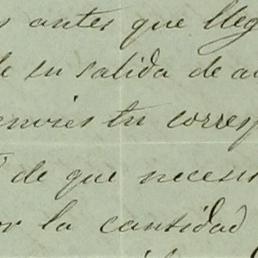 antes que lleg
de su salida de a
envies tu corresp
de que neces
or la cantidad